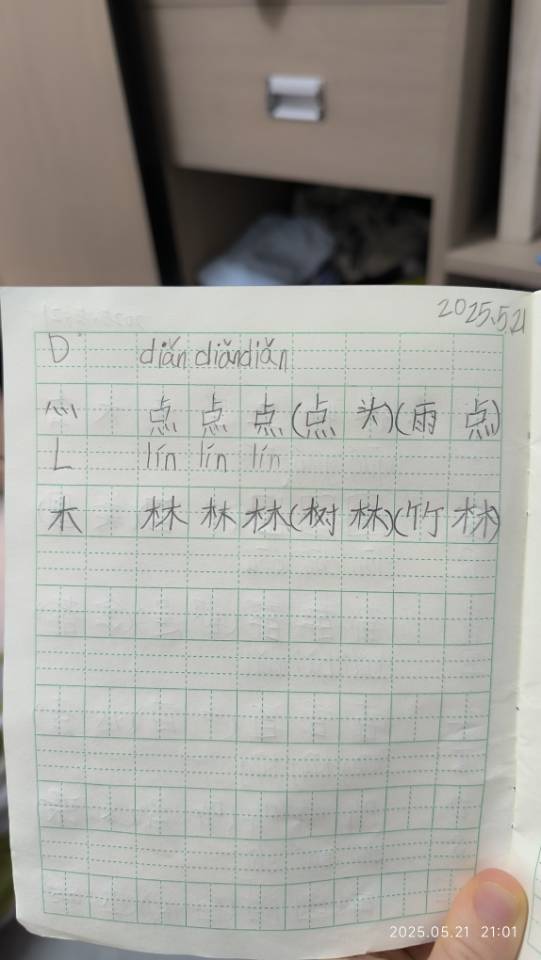 2025.5.21
D diǎn diǎn diǎn
灬 点 点 点 (点 头) (雨 点)
L lín lín lín
木 林 林 林 (树 林) (竹 林)
2025.05.21 21:01